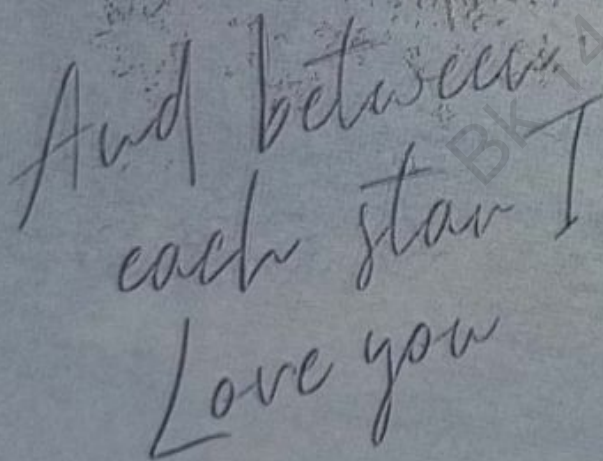 And between
each star I
Love you
BK 14